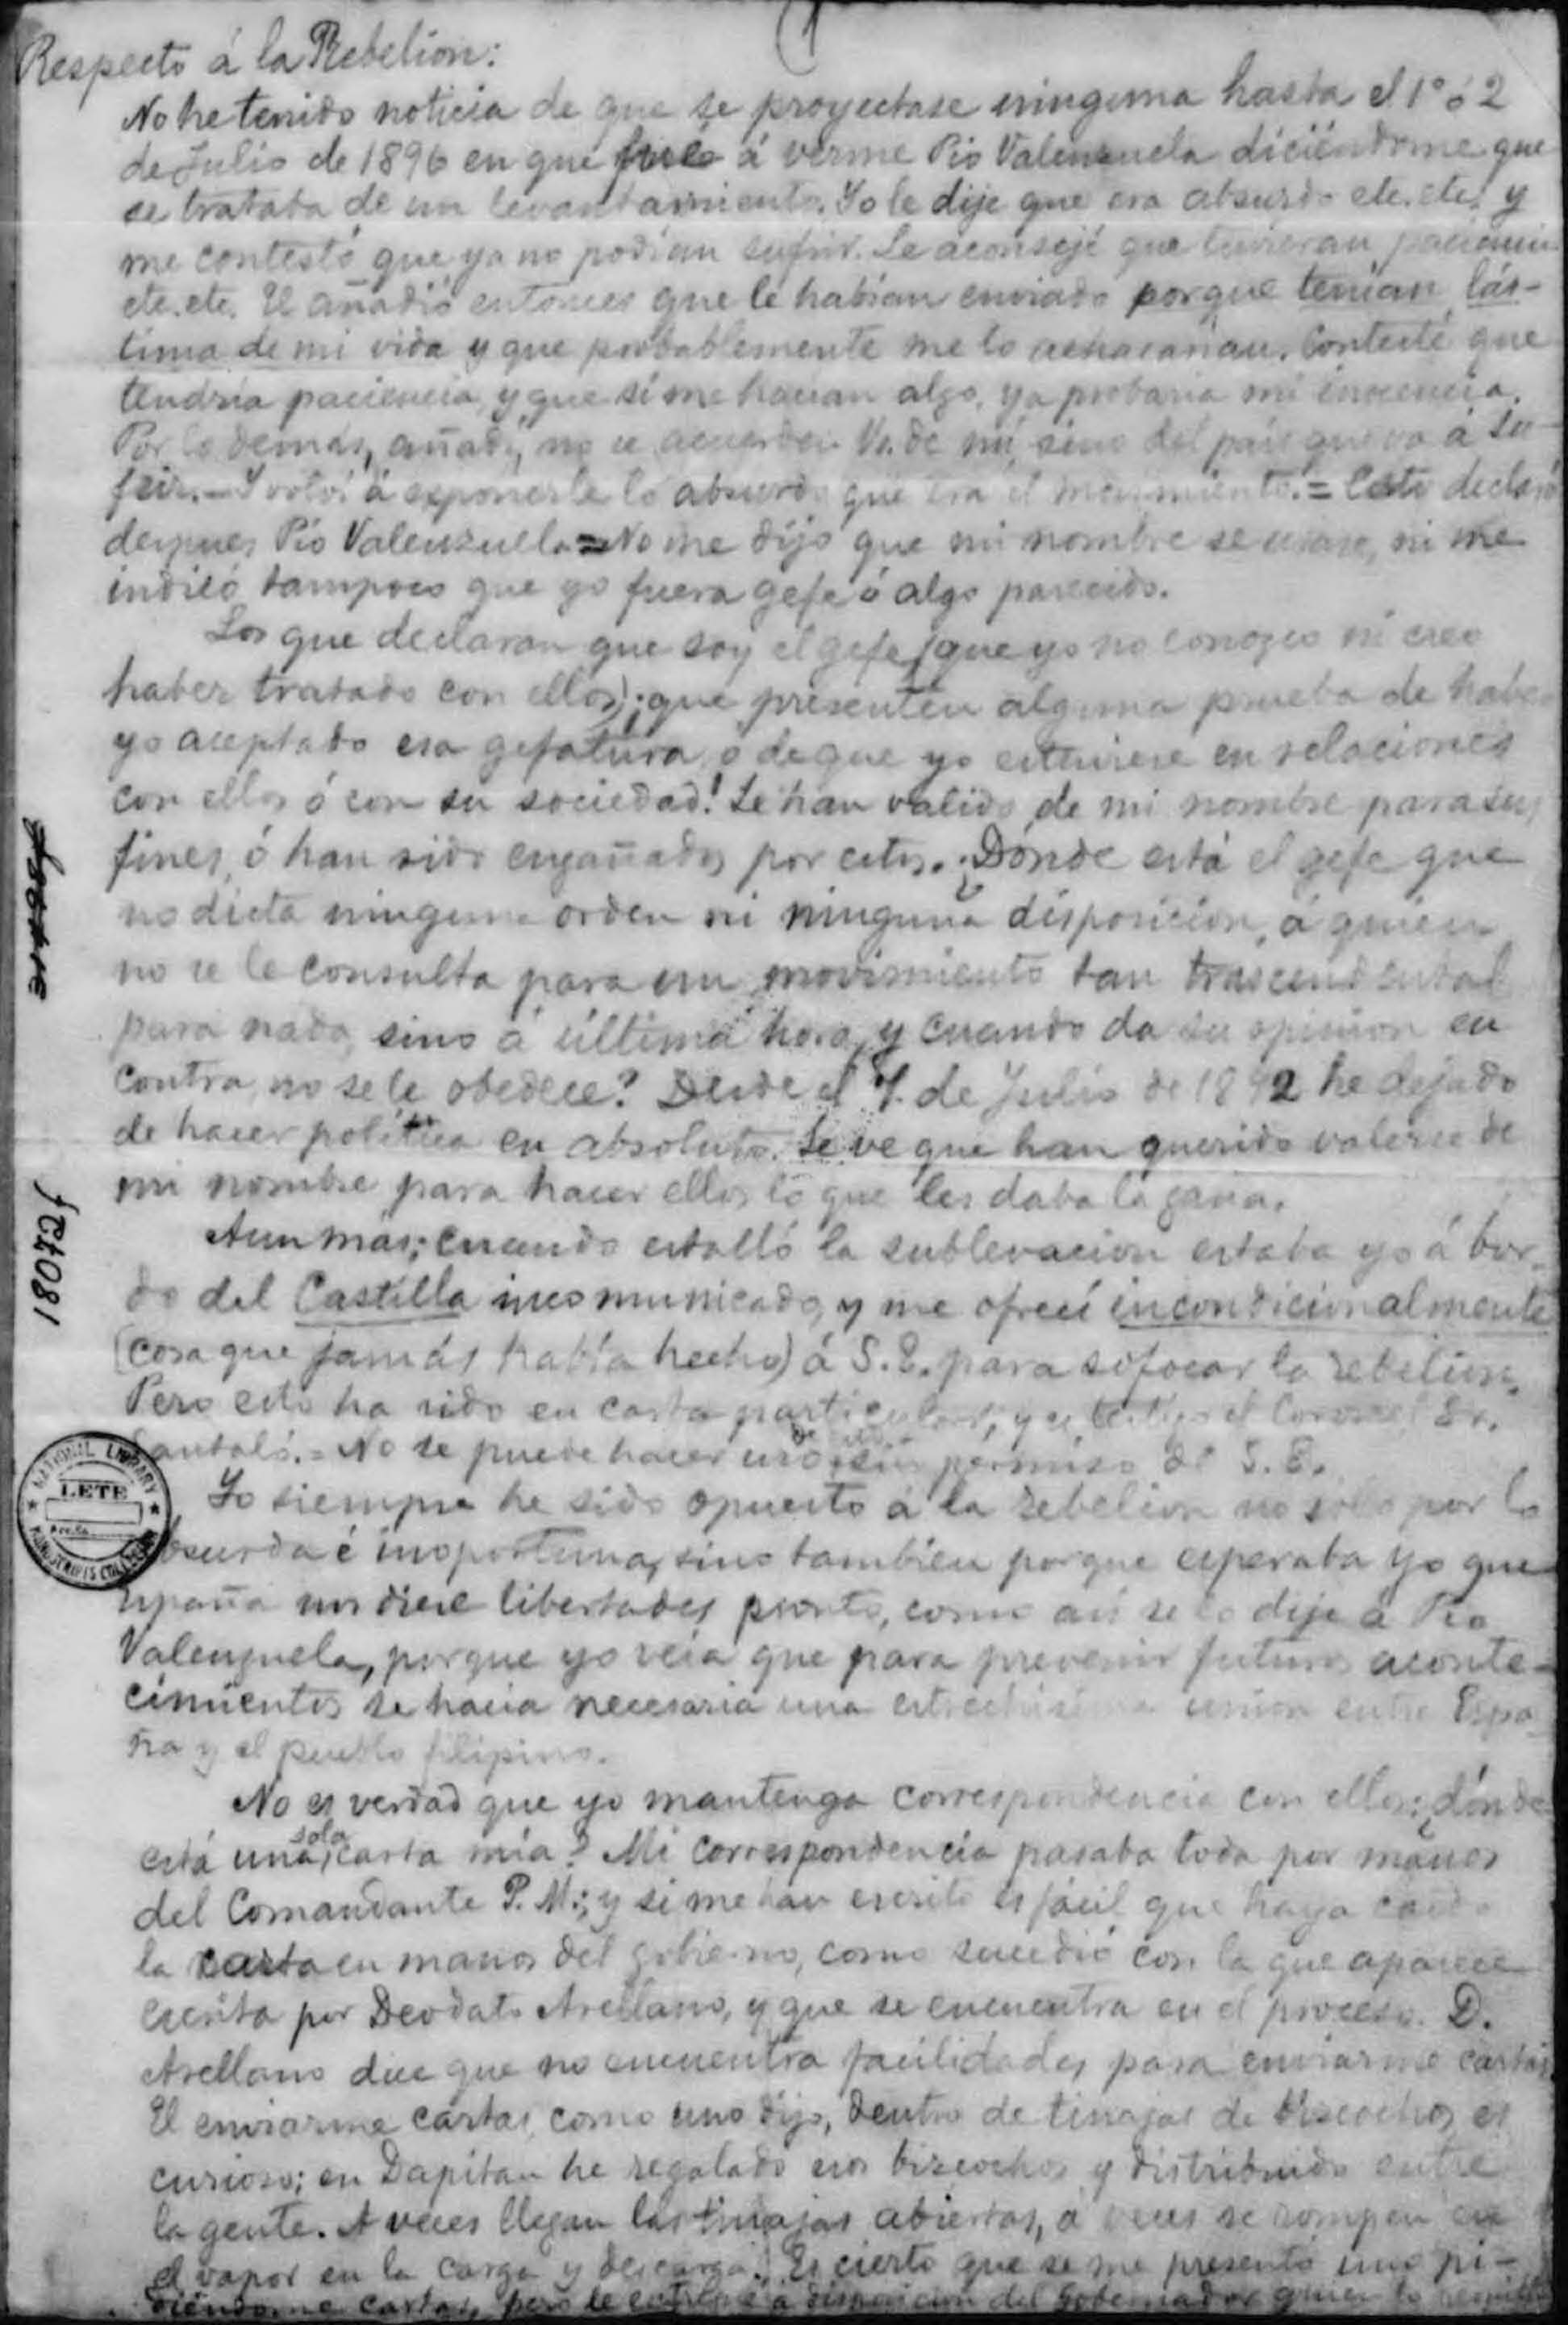 (1
Respecto á la Rebelion:
No he tenido noticia de que se proyectase ninguna hasta el 1º ó 2
de Julio de 1896 en que fué á verme Pio Valenzuela diciéndome que
se trataba de un levantamiento. Yo le dije que era absurdo etc. etc. y
me contestó que ya no podian sufrir. Le aconsejé que tuvieran paciencia
etc. etc. El añadió entonces que le habian enviado porque tenian lás-
tima de mi vida y que probablemente me lo achacarian. Contesté que
tendría paciencia, y que si me hacian algo, ya probaria mi inocencia.
Por lo demás, añadí, no se acuerden Vs. de mí, sino del país que va á su-
frir. - Y volví á exponerle lo absurdo que era el movimiento. = Esto declaró
despues Pio Valenzuela = No me dijo que mi nombre se usase, ni me
indicó tampoco que yo fuera gefe ó algo parecido.
Los que declaran que soy el gefe (que yo no conozco ni creo
haber tratado con ellos); que presenten alguna prueba de haber
yo aceptado esa gefatura, ó de que yo estuviese en relaciones
con ellos ó con su sociedad! Se han valido de mi nombre para sus
fines, ó han sido engañados por estos. ¿Dónde está el gefe que
no dicta ninguna orden ni ninguna disposicion, á quien
no se le consulta para un movimiento tan trascendental
para nada, sino á última hora, y cuando da su opinion en
contra, no se le obedece? Desde el 7 de Julio de 1892 he dejado
de hacer política en absoluto. Se ve que han querido valerse de
mi nombre para hacer ellos lo que les daba la gana.
Aun mas; cuando estalló la sublevacion estaba yo á bor-
do del Castilla incomunicado, y me ofrecí incondicionalmente
(cosa que jamás habia hecho) á S. E. para sofocar la rebelion.
Pero esto ha sido en carta particular, y es testigo el Coronel Sr.
Santaló. = No se puede hacer uso de sin permiso de S. E.
Yo siempre he sido opuesto á la rebelion no solo por lo
absurda é inoportuna, sino tambien porque esperaba yo que
España nos diese libertades pronto, como así se lo dije á Pio
Valenzuela, porque yo veia que para prevenir futuros aconte-
cimientos se hacia necesaria una estrechísima union entre Espa-
ña y el pueblo filipino.
No es verdad que yo mantenga correspondencia con ellos; ¿dónde
está una sola carta mía? Mi correspondencia pasaba toda por manos
del Comandante P. M.; y si me han escrito es fácil que haya caido
la carta en manos del gobierno, como sucedió con la que aparece
escrita por Deodato Arellano, y que se encuentra en el proceso. D.
Arellano dice que no encuentra facilidades para enviarme cartas.
El enviarme cartas, como uno dijo, dentro de tinajas de biscochos es
curioso; en Dapitan he regalado esos biscochos y distribuido entre
la gente. A veces llegan las tinajas abiertas, á veces se rompen en
el vapor en la carga y descarga. Es cierto que se me presentó uno pi-
diéndome cartas, pero le entregué á disposicion del Gobernador quien lo
18072f
NATIONAL LIBRARY
LETE
MANUSCRIPTS COLLECTION